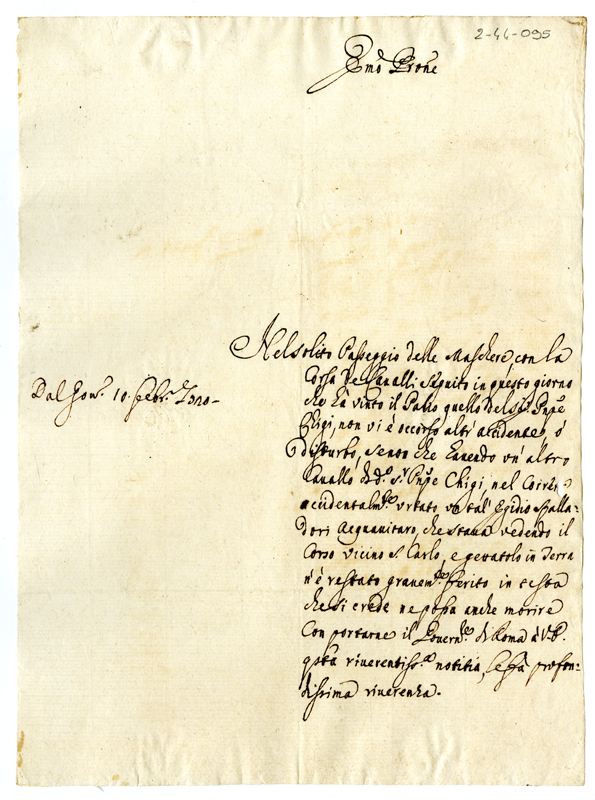 2-44-095
Emo Prone
Nel solito Passeggio delle Maschere con la
Corsa de Cavalli seguito in questo giorno
Dal Gov.º 10. Febr.º 1720-
che hà vinto il Palio quello del Sig.r Pnpe
Chigi, non vi è occorso altr' accidente, ò
disturbo, senon che havendo un' altro
Cavallo di d.º S.r Pnpe Chigi, nel Correre
accidentalm.te urtato un tal' Egidio Spalla=
dori Acquavitaro, che stava vedendo il
Corso vicino S. Carlo, e gettatolo in Terra
n'è restato gravem.te ferito in testa
che si crede ne possa anche morire
Con portarne il Govern.re di Roma à V.E.
qsta riverentiss.a notitia, le fà profon=
dissima riverenza.